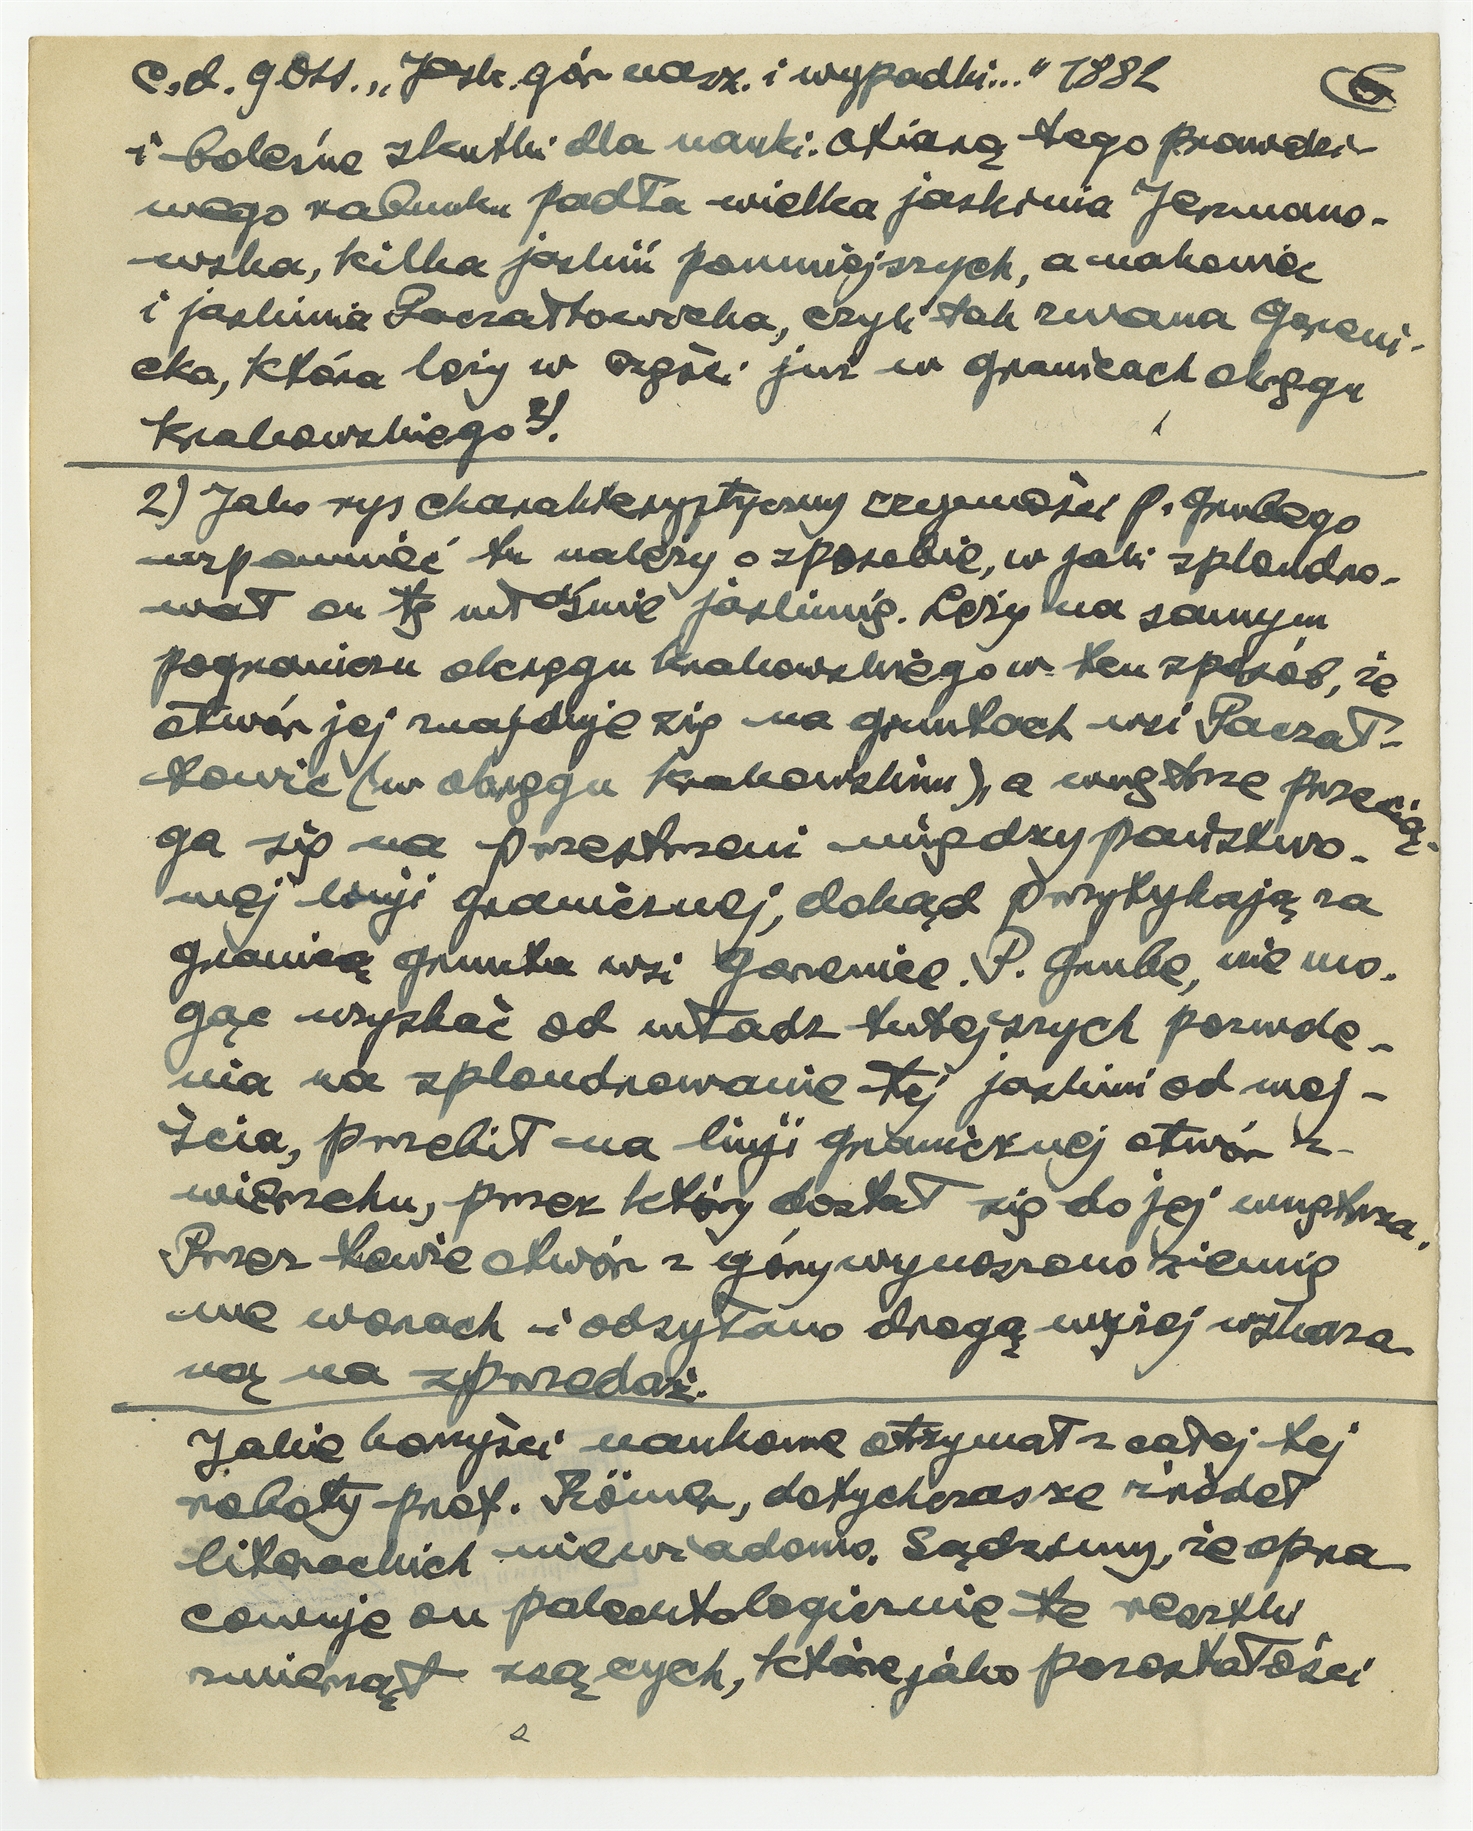 c.d. g Oss. „Jask. gór nasz. i wypadki..." 1882 6
i bolesne skutki dla nauki. Ofiarą tego prawdzi-
wego rabunku padła wielka jaskinia Jermano-
wska, kilka jaskiń pomniejszych, a nakoniec
i jaskinia Paczałtowicka, czyli tak zwana Goreni-
cka, która leży w części już w granicach okręgu
krakowskiego 2).
2) Jako rys charakterystyczny czynności p. Grubego
wspomnieć tu należy o sposobie, w jaki splondro-
wał on tę właśnie jaskinię. Leży na samym
pograniczu okręgu krakowskiego w ten sposób, że
otwór jej znajduje się na gruntach wsi Paczał-
towic (w okręgu krakowskim), a wnętrze przecią-
ga się na przestrzeni międzypaństwo-
wej linji granicznej, dokąd przytykają za
granicą grunta wsi Gorenice. P. Grube, nie mo-
gąc uzyskać od władz tutejszych pozwole-
nia na splondrowanie tej jaskini od wej-
ścia, przebił na linji granicznej otwór z
wierzchu, przez który dostał się do jej wnętrza.
Przez tenże otwór z góry wynoszono ziemię
we worach i odsyłano drogą wyżej wskaza-
ną na sprzedaż.
Jakie korzyści naukowe otrzymał z całej tej
roboty prof. Römer, dotychczas ze źródeł
literackich niewiadomo. Sądzimy, że opra
cowuje on paleontologicznie te resztki
zwierząt ssących, które jako pozostałości